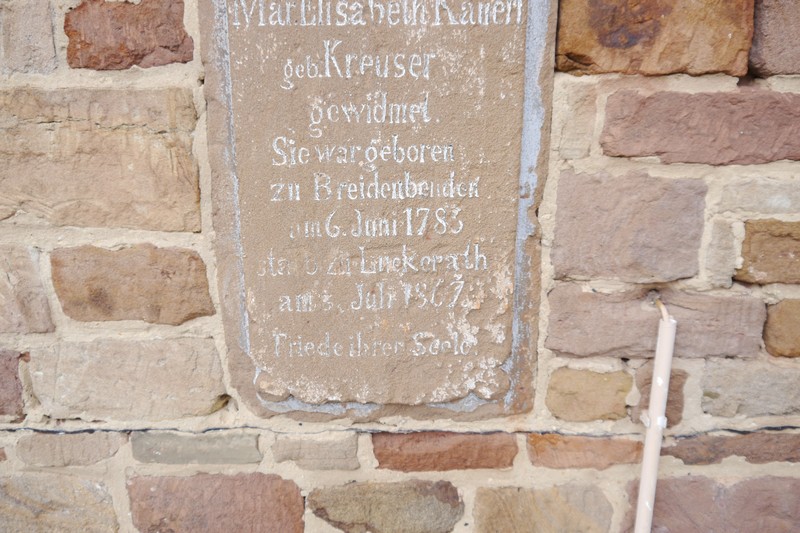 Mar. Elisabeth Kauert
geb. Kreuser
gewidmet.
Sie war geboren
zu Breidenbenden
am 6. Juni 1783
starb zu Lückerath
am 3. Juli 1867.
Friede ihrer Seele